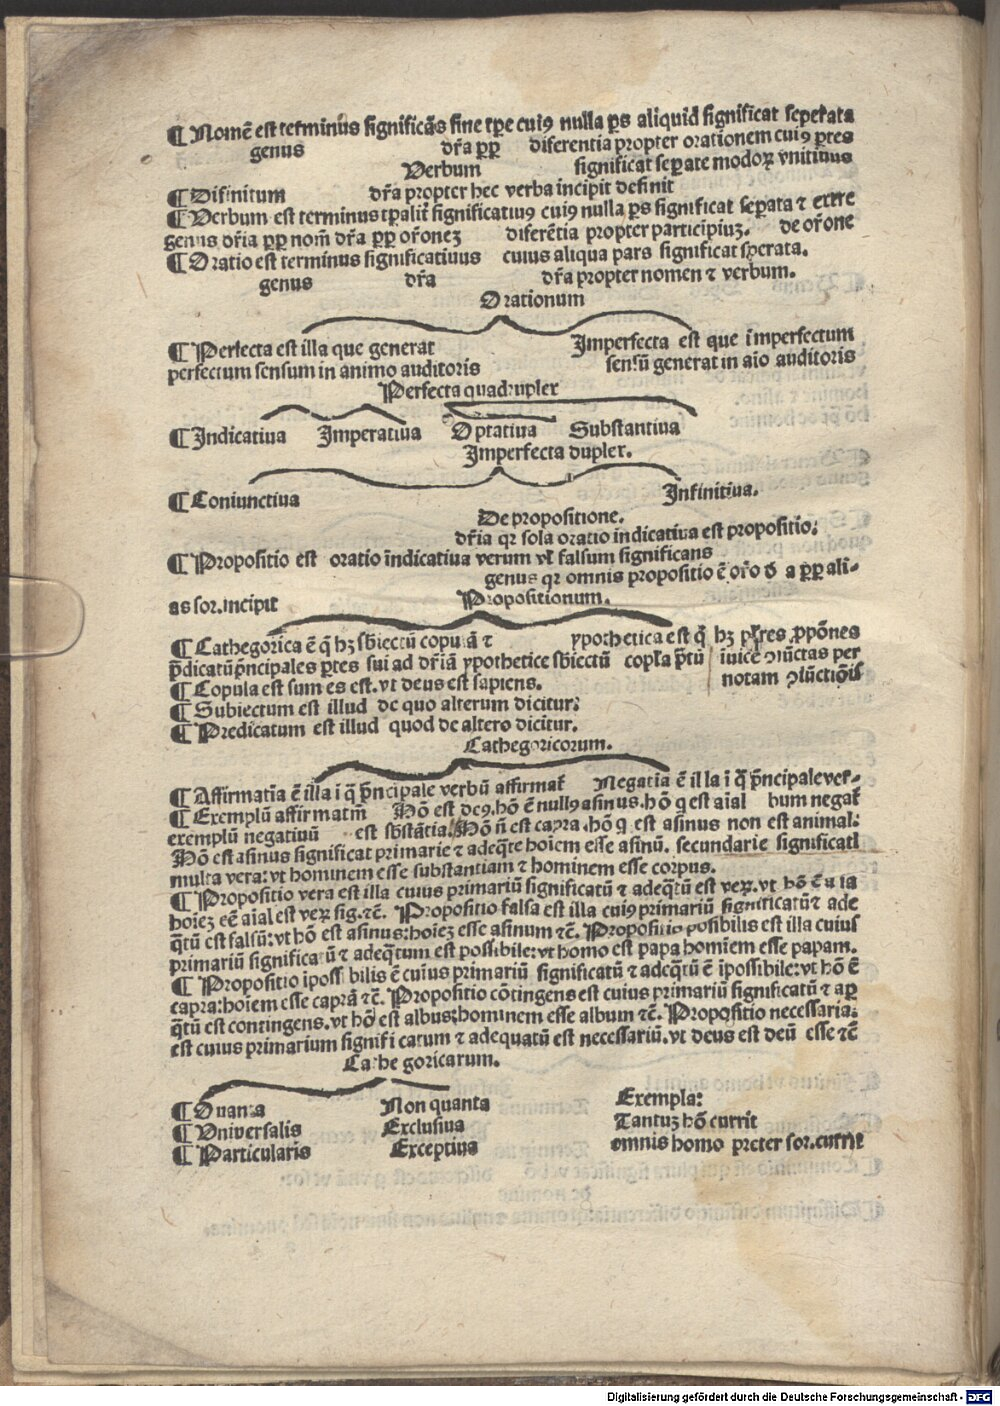 ¶ Nomē est terminus significās sine tꝑe cuiꝰ nulla ꝑs aliquid significat seperata
genus dr̄a ꝓꝑ diferentia propter orationem cuiꝰ ꝑtes
Verbum significat seꝑate modoꝝ vnitiuus
¶ Difinitum dr̄a propter hec verba incipit definit
¶ Verbum est terminus tꝑalit̄ significatiuꝰ cuiꝰ nulla ꝑs significat seꝑata ⁊ extre
genus dr̄ia ꝓꝑ nom̄ dr̄a ꝓꝑ or̄onez diferētia propter participiuz. de or̄one
¶ Oratio est terminus significatiuus cuius aliqua pars significat sperata.
genus dr̄a dr̄a propter nomen ⁊ verbum.
Orationum
¶ Perfecta est illa que generat Imperfecta est que imperfectum
perfectum sensum in animo auditoris sensū generat in aīo auditoris
Perfecta quadrupler
¶ Indicatiua Imperatiua Optatiua Substantiua
Imperfecta dupler.
¶ Coniunctiua Infinitiua.
De propositione.
dr̄ia qr sola oratio indicatiua est propositio:
¶ Propositio est oratio indicatiua verum vl̄ falsum significans
genus qr omnis propositio ē or̄o a ꝓꝑ ali-
as sor. incipit Propositionum.
¶ Cathegorica ē q̄ hꝫ sbiectū copulā ⁊ ypothetica est q̄ hꝫ pl̄res ꝓpōnes
p̄dicatū p̄ncipales ꝑtes sui ad dr̄iā ypothetice sbiectū copl̄a p̄tū iuicē ꝯiūctas per
¶ Copula est sum es est. vt deus est sapiens. notam ꝯiūctiōis
¶ Subiectum est illud de quo alterum dicitur:
¶ Predicatum est illud quod de altero dicitur.
Cathegoricorum.
¶ Affirmatia ē illa ī q̄ p̄ncipale verbū affirmat̄ Negatia ē illa ī q̄ p̄ncipale ver-
¶ Exemplū affirmatiū Hō est deꝰ. hō ē nullꝰ asinus. hō qͥ est aīal bum negat̄
exemplū negatiuū est sbstātia. Hō n̄ est capra. hō qͥ est asinus non est animal:
Hō est asinus significat primarie ⁊ adeq̄te hoīem esse asinū. secundarie significat
multa vera: vt hominem esse substantiam ⁊ hominem esse corpus.
¶ Propositio vera est illa cuius primariū significatū ⁊ adeq̄tū est veꝝ. vt hō ē aīal
hoīez eē aīal est veꝝ sig. ⁊c̄. Propositio falsa est illa cuiꝰ primariū significatū ⁊ ade
q̄tū est falsū: vt hō est asinus: hoīez esse asinum ⁊c̄. Propositio posibilis est illa cuius
primariū significatū ⁊ adeq̄tum est possibile: vt homo est papa homīem esse papam.
¶ Propositio īpossibilis ē cuius primariū significatū ⁊ adeq̄tū ē īpossibile: vt hō ē
capra: hoīem esse caprā ⁊c̄. Propositio cōtingens est cuius primariū significatū ⁊ aꝑ
q̄tū est contingens. vt hō est albus: hominem esse album ⁊c̄. Propositio necessaria:
est cuius primarium significatum ⁊ adequatū est necessariū. vt deus est deū esse ⁊c̄
Cathegoricarum.
¶ Quanta Non quanta Exempla:
¶ Vniversalis Exclusiua Tantuꝫ hō currit
¶ Particularis Exceptiua omnis homo preter sor. currit
Digitalisierung gefördert durch die Deutsche Forschungsgemeinschaft - DFG